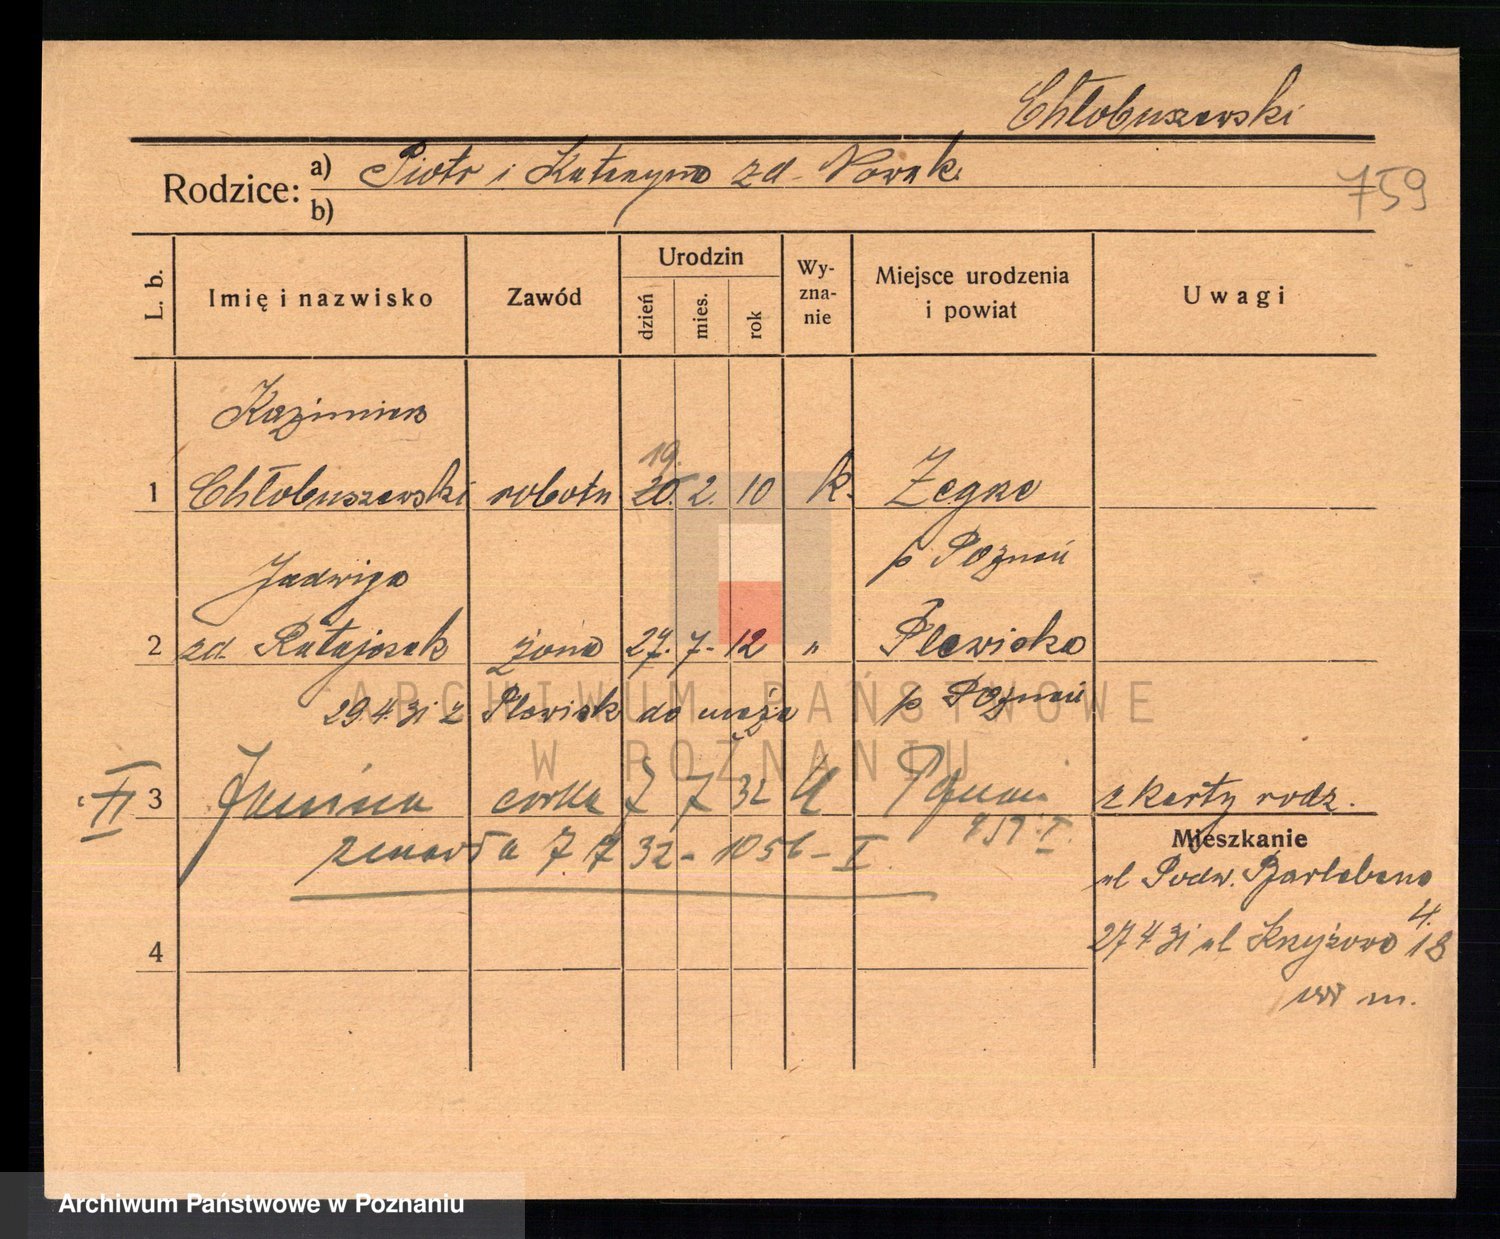 Chłobuszewski
Rodzice: a) Piotr i Katarzyna zd. Nowak
b)
759
L. b.
Imię i nazwisko
Zawód
Urodzin
dzień
mies.
rok
Wy-
zna-
nie
Miejsce urodzenia
i powiat
Uwagi
Kazimierz
19.
1 Chłobuszewski robotn 20. 2. 10 k. Żegrze
p Poznań
Jadwiga
2 zd. Ratajczak żona 27. 7. 12 " Plewiska
29.4.31 z Plewisk do męża p Poznań
3 Janina córka 7 7 32 k Poznań z karty rodz.
zmarła 7. 7 32 - 1056 - I
Mieszkanie
ul Podw. Bartebena
4.
27 4 31 ul Krzyżowa 18
4
m.
ARCHIWUM PAŃSTWOWE
W POZNANIU
Archiwum Państwowe w Poznaniu